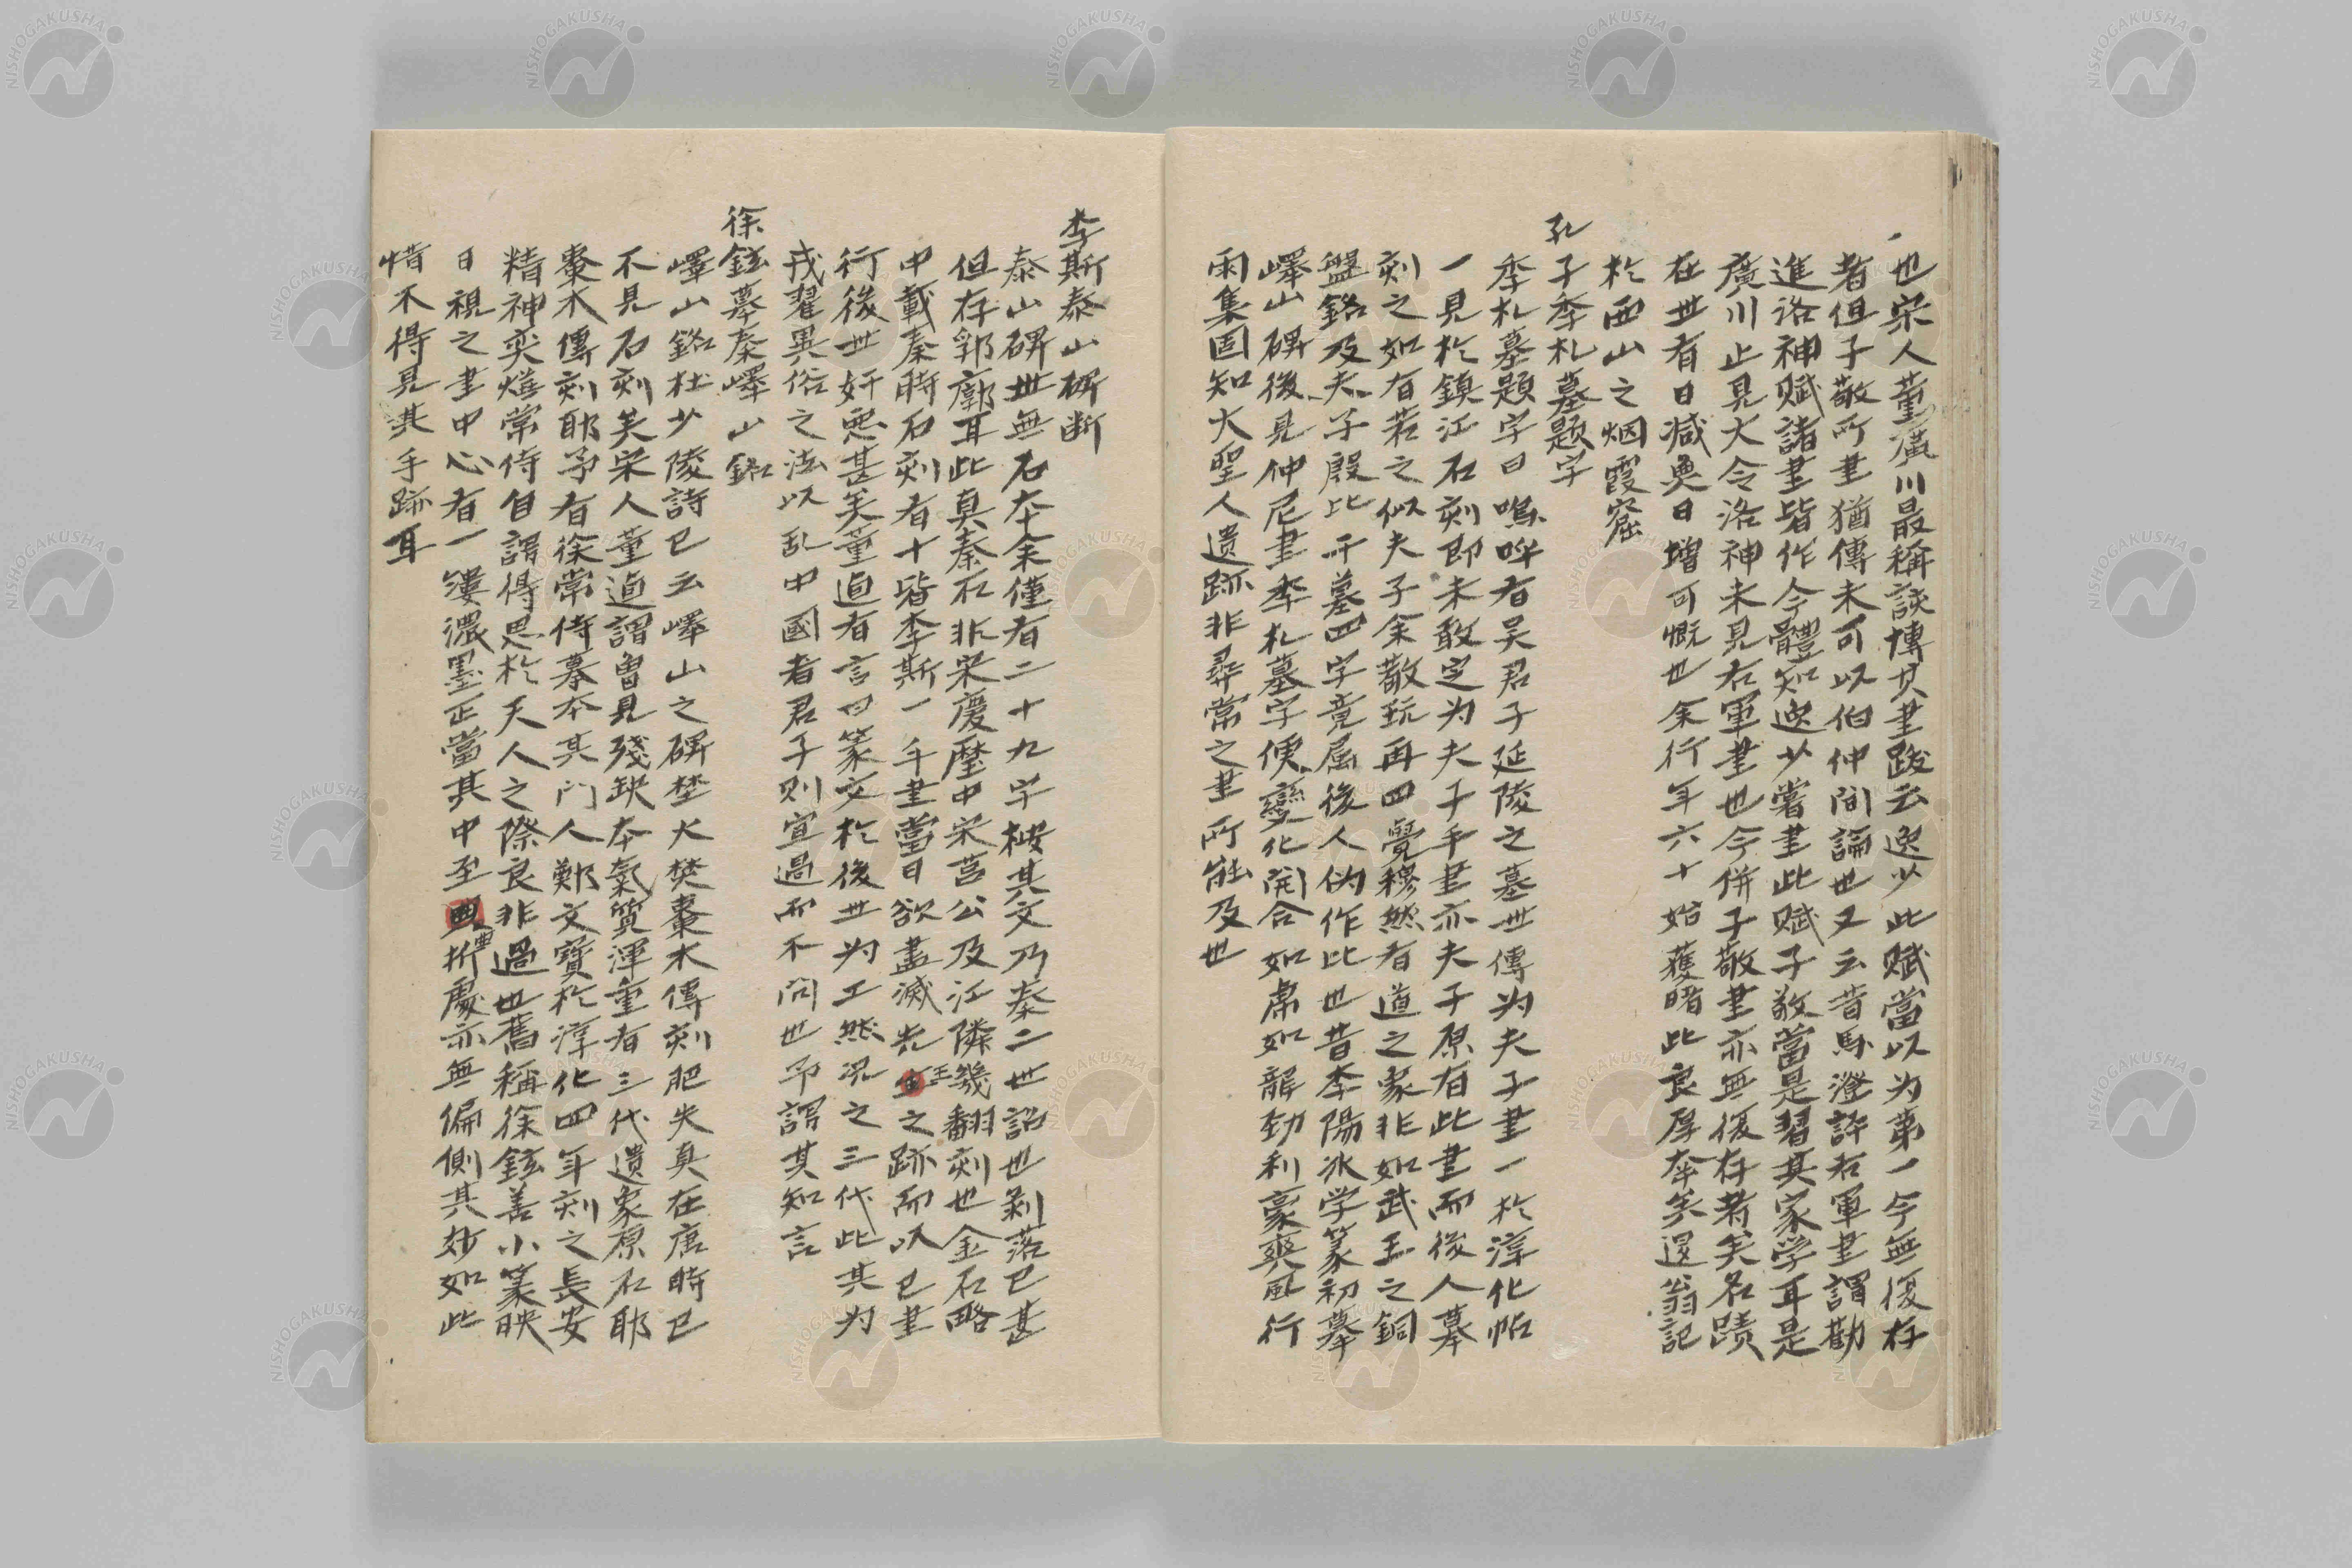 也宋人董廣川最稱談博其書跋云逸少此賦當以为第一今無復存
者但子敬所書猶傳未可以伯仲间論也又云昔馬澄評右軍書謂勸
進洛神賦諸書皆作今體知逸少嘗書此賦子敬當是習其家学耳是
廣川止見大令洛神未見右軍書也今併子敬書亦無復存者矣名蹟
在世者日減奥日增可慨也余行年六十始獲睹此良厚夲矣退翁記
於西山之烟霞窟
孔子季札墓題字
季札墓題字曰嗚呼有吴君子延陵之墓世傳为夫子書一於淳化帖
一見於鎮江石刻即未敢定为夫子手書亦夫子原有此書而後人摹
刻之如有若之似夫子余敬玩再四覺穆然有道之象非如武王之銅
盤銘及夫子殷比干墓四字竟屬後人伪作比也昔李陽冰学篆初摹
嶧山碑後見仲尼書季札墓字便變化開合如虎如龍劲利豪爽風行
雨集固知大聖人遗跡非尋常之書所能及也
李斯泰山碑断
泰山碑世無石夲余僅有二十九字桉其文乃秦二世詔也剥落已甚
但存郛廓耳此真秦石非宋慶歷中宋莒公及江隣幾翻刻也金石略
中載秦時石刻有十皆李斯一手書當日欲盡滅先王之跡而以己書
行後世奸恶甚矣董逌有言曰篆文於後世为工然况之三代此其为
戎翟異俗之法以乱中國者君子则宜過而不问也予謂其知言
徐鉉摹秦嶧山銘
嶧山銘杜少陵詩已云嶧山之碑埜火焚棗木傳刻肥失真在唐時已
不見石刻矣宋人董逌謂曾見殘缺夲氣質渾重有三代遗象原石耶
棗木傳刻耶予有徐常侍摹夲其门人鄭文寶於淳化四年刻之長安
精神奕熺常侍自謂得思於天人之際良非過也舊稱徐鉉善小篆映
日視之書中心有一缕濃墨正當其中至曲折處亦無偏側其妙如此
惜不得見其手跡耳
NISHOGAKUSHA